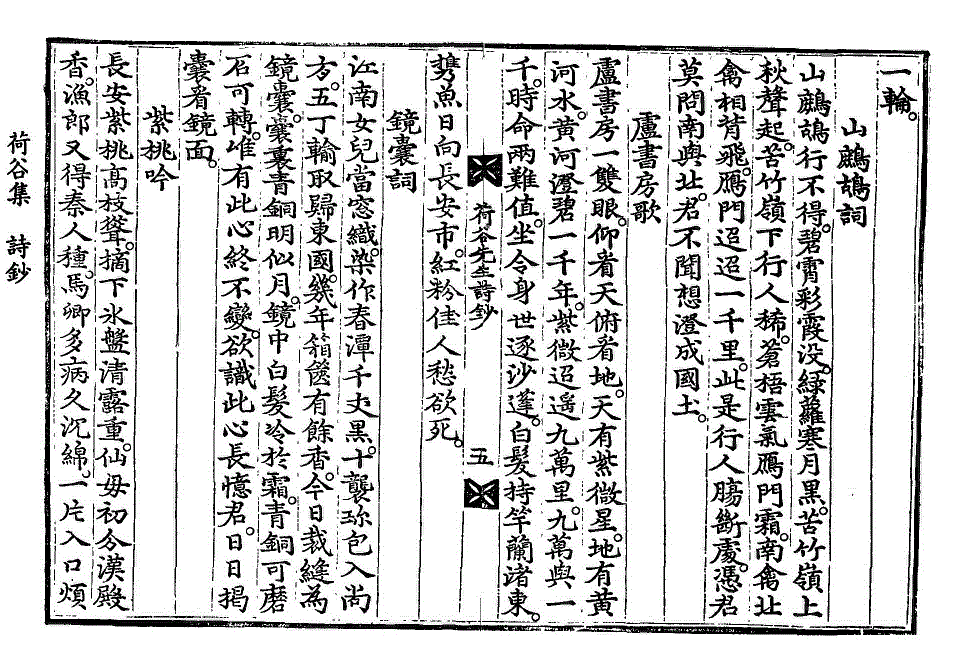 一輪。
山鷓鴣詞
山鷓鴣行不得。碧霄彩霞沒。綠蘿寒月黑。苦竹嶺上
秋聲起。苦竹嶺下行人稀。蒼梧雲氣鴈門霜。南禽北
禽相背飛。鴈門迢迢一千里。此是行人膓斷處。憑君
莫問南與北。君不聞想澄成國土。
盧書房歌
盧書房一雙眼。仰看天俯看地。天有紫微星。地有黃
河水。黃河澄碧一千年。紫微迢遙九萬里。九萬與一
千。時命兩難值。坐令身世逐沙蓬。白髮持竿蘭渚東。
荷谷先生詩鈔 五
携魚日向長安市。紅粉佳人愁欲死。
鏡囊詞
江南女兒當窓織。染作春潭千丈黑。十襲珎包入尚
方。五丁輸取歸東國。幾年箱篋有餘香。今日裁縫為
鏡囊。囊裏青銅明似月。鏡中白髮冷於霜。青銅可磨
石可轉。唯有此心終不變。欲識此心長憶君。日日揭
囊看鏡面。
紫桃吟
長安紫桃高枝聳。摘下氷盤清露重。仙母初分漢殿
香。漁郎又得秦人種。馬卿多病久沉綿。一片入口煩
荷谷集 詩鈔